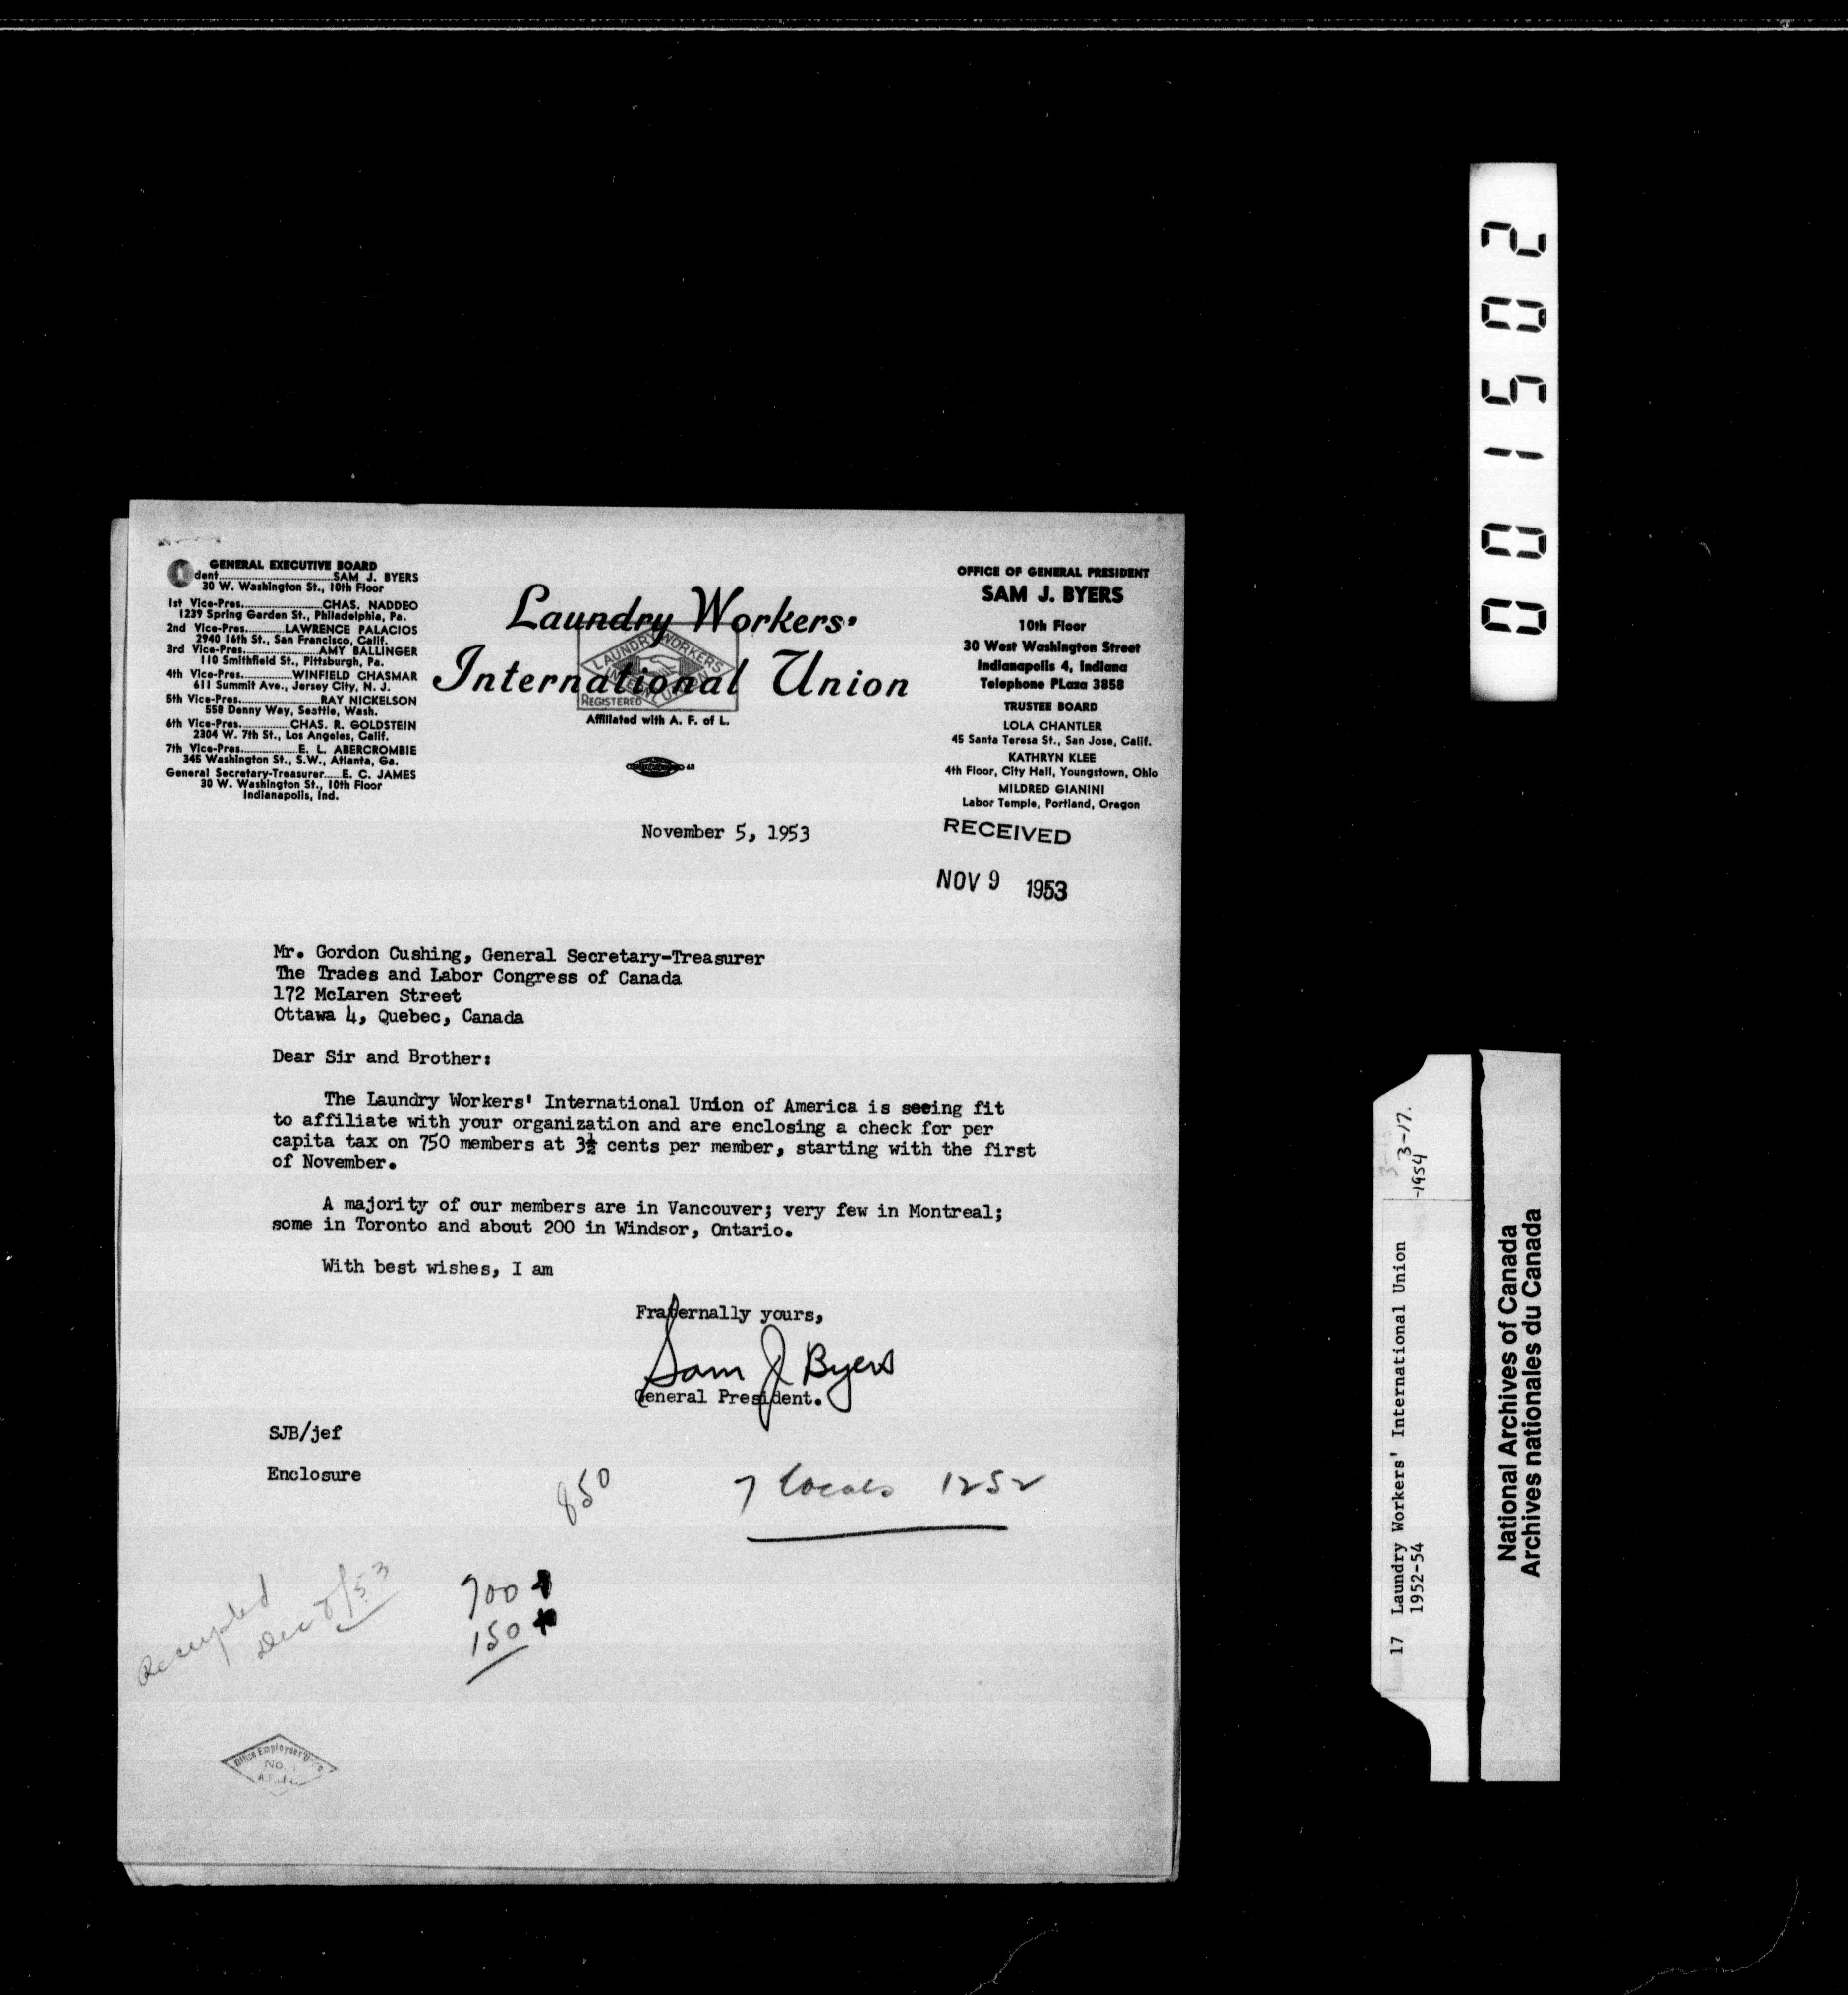 GENERAL EXECUTIVE BOARD
dent............SAM J. BYERS
30 W. Washington St., 10th Floor
1st Vice-Pres............CHAS. NADDEO
1239 Spring Garden St., Philadelphia, Pa.
2nd Vice-Pres............LAWRENCE PALACIOS
2940 16th St., San Francisco, Calif.
3rd Vice-Pres............AMY BALLINGER
110 Smithfield St., Pittsburgh, Pa.
4th Vice-Pres............WINFIELD CHASMAR
611 Summit Ave., Jersey City, N. J.
5th Vice-Pres............RAY NICKELSON
558 Denny Way, Seattle, Wash.
6th Vice-Pres............CHAS. R. GOLDSTEIN
2304 W. 7th St., Los Angeles, Calif.
7th Vice-Pres............E. L. ABERCROMBIE
345 Washington St., S.W., Atlanta, Ga.
General Secretary-Treasurer......E. C. JAMES
30 W. Washington St., 10th Floor
Indianapolis, Ind.
Laundry Workers'
International Union
LAUNDRY WORKERS
INTERN'L UNION
REGISTERED
Affiliated with A. F. of L.
OFFICE OF GENERAL PRESIDENT
SAM J. BYERS
10th Floor
30 West Washington Street
Indianapolis 4, Indiana
Telephone PLaza 3858
TRUSTEE BOARD
LOLA CHANTLER
45 Santa Teresa St., San Jose, Calif.
KATHRYN KLEE
4th Floor, City Hall, Youngstown, Ohio
MILDRED GIANINI
Labor Temple, Portland, Oregon
November 5, 1953
RECEIVED
NOV 9 1953
Mr. Gordon Cushing, General Secretary-Treasurer
The Trades and Labor Congress of Canada
172 McLaren Street
Ottawa 4, Quebec, Canada
Dear Sir and Brother:
The Laundry Workers' International Union of America is seeing fit
to affiliate with your organization and are enclosing a check for per
capita tax on 750 members at 3½ cents per member, starting with the first
of November.
A majority of our members are in Vancouver; very few in Montreal;
some in Toronto and about 200 in Windsor, Ontario.
With best wishes, I am
Fraternally yours,
Sam J Byers
General President.
SJB/jef
Enclosure
850
7 locals 1252
Receipted
Dec 8/53
700
150
Office Employees' Union
No. 1
A.F. of L.
001502
3-17.
-1954
17 Laundry Workers' International Union
1952-54
National Archives of Canada
Archives nationales du Canada